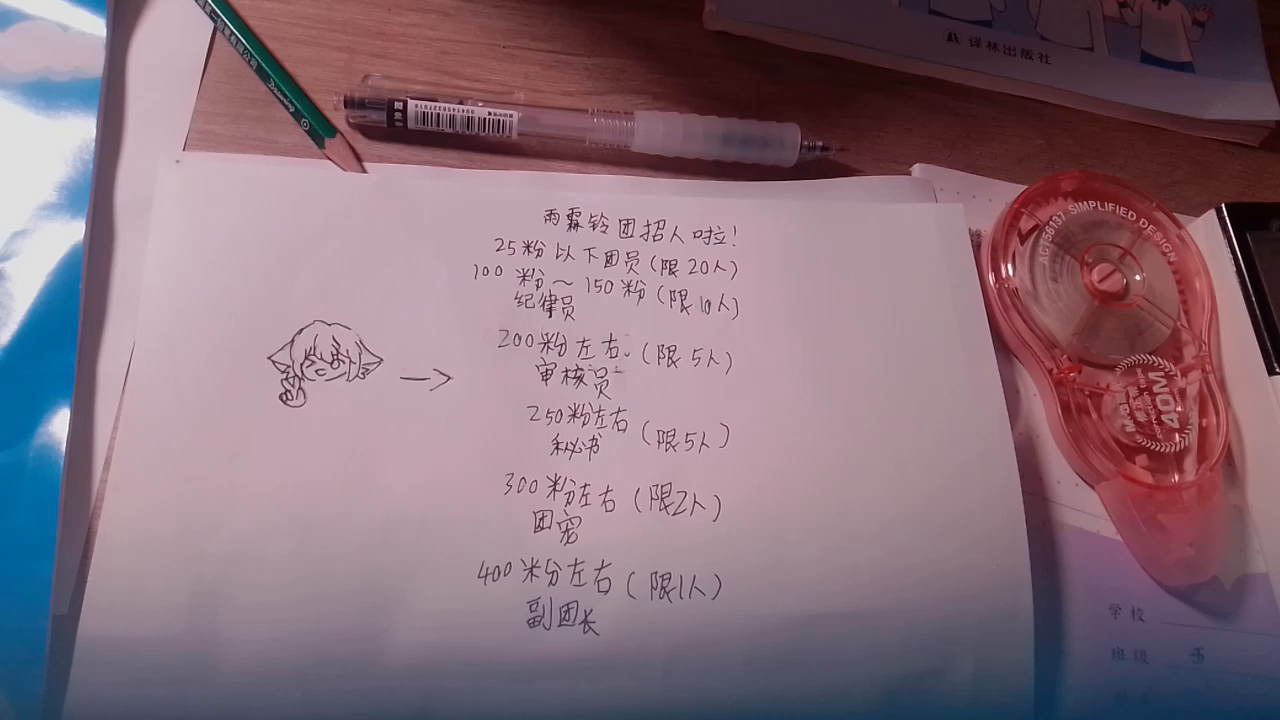 译林出版社
雨霖铃团招人啦!
25粉以下团员(限20人)
100粉~150粉(限10人)
纪律员
200粉左右(限5人)
审核员
250粉左右(限5人)
秘书
300粉左右(限2人)
团宠
400粉左右(限1人)
副团长
ACT56137 SIMPLIFIED DESIGN
40M
学校
班级 五